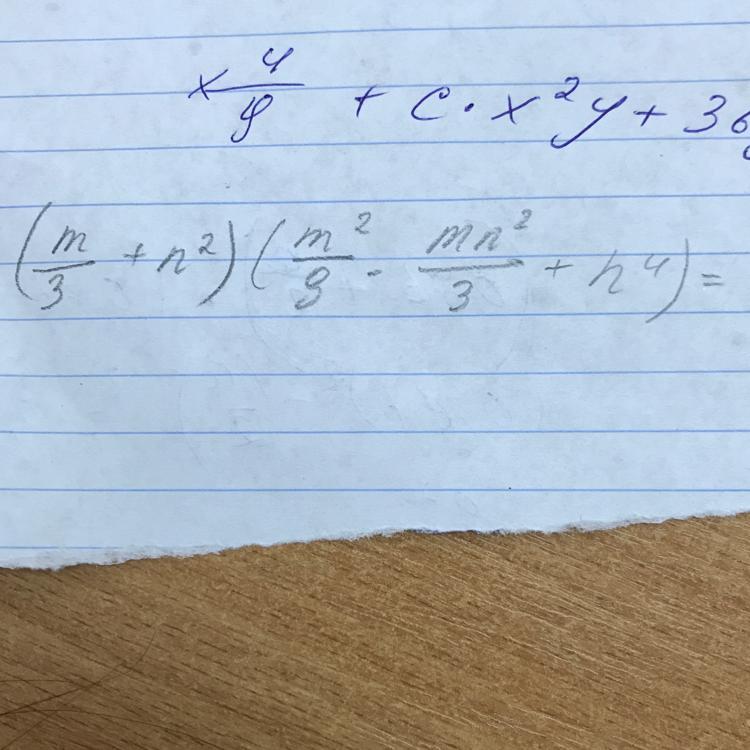 x 4/9 + c · x²y + 36
(m/3 + n²)(m²/9 - mn²/3 + n⁴) =